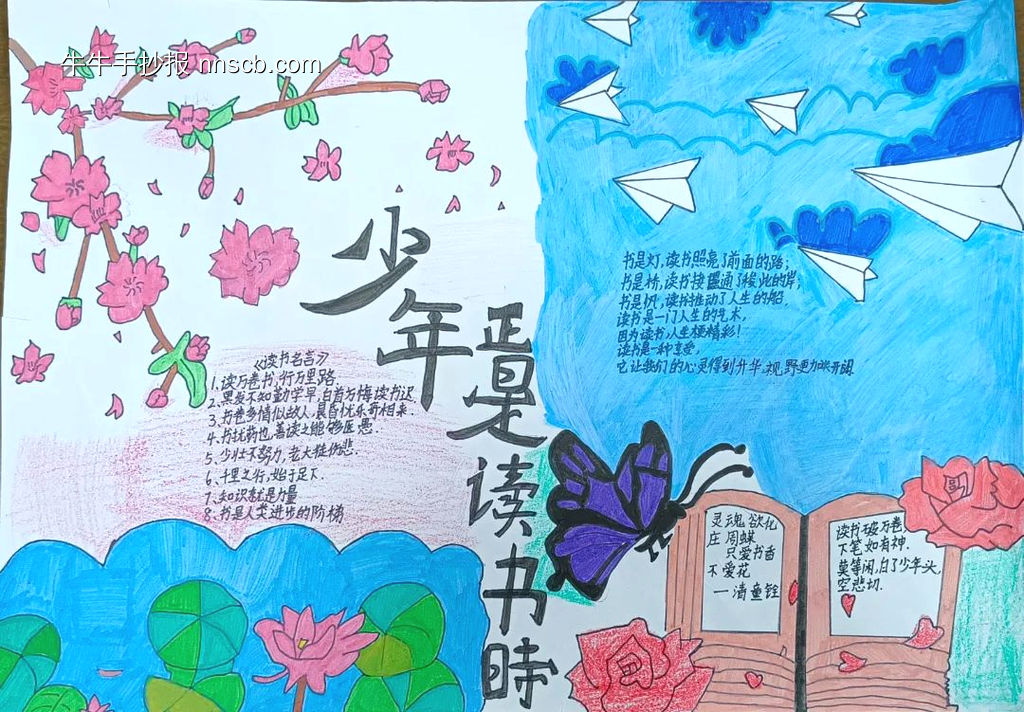 牛牛手抄报 nnscb.com
少年
正是读书时
《读书名言》
1、读万卷书,行万里路
2、黑发不知勤学早,白首方悔读书迟
3、书卷多情似故人,晨昏忧乐每相亲
4、书犹药也,善读之能够医愚
5、少壮不努力,老大徒伤悲.
6、千里之行,始于足下.
7、知识就是力量
8、书是人类进步的阶梯
书是灯,读书照亮了前面的路;
书是桥,读书接通了彼此的岸;
书是帆,读书推动了人生的船.
读书是一门人生的艺术,
因为读书,人生更精彩!
读书是一种享受,
它让我们的心灵得到升华,视野更加开阔
灵魂欲化
庄周蝶
只爱书香
不爱花
—清鱼铨
读书破万卷,
下笔如有神.
莫等闲,白了少年头,
空悲切.